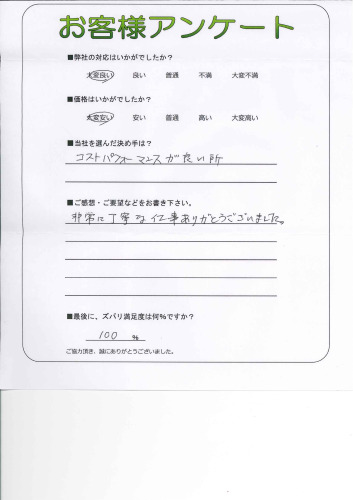 お客様アンケート
■弊社の対応はいかがでしたか?
大変良い 良い 普通 不満 大変不満
■価格はいかがでしたか?
大変安い 安い 普通 高い 大変高い
■当社を選んだ決め手は?
コストパフォーマンスが良い所
■ご感想・ご要望などをお書き下さい。
非常に丁寧な仕事ありがとうございました。
■最後に、ズバリ満足度は何%ですか?
100 %
ご協力頂き、誠にありがとうございました。